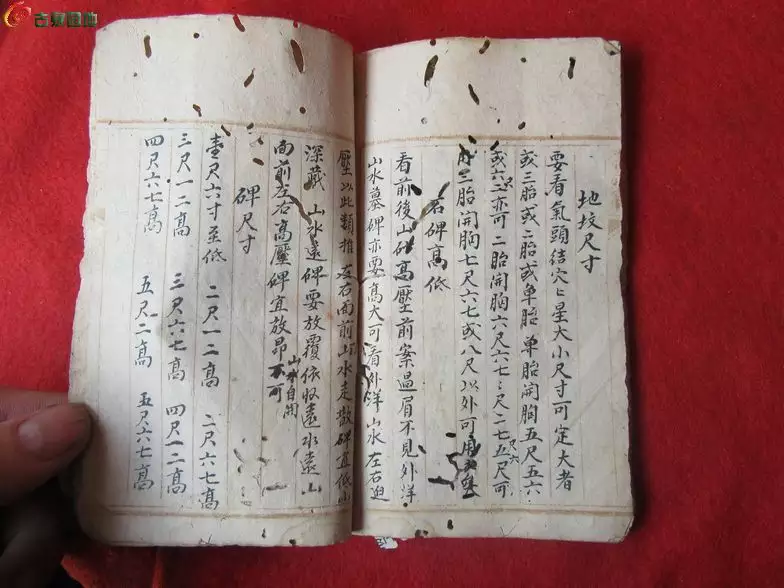 古泉园地
地坟尺寸
要看氣頭结穴匕星大小尺寸可定大者
或三胎或二胎或单胎单胎開胸五尺五六
或六二亦可二胎開胸六尺六七匕尺二七五尺可
尺六
用三胎開胸七尺六七或八尺以外可用
名碑高低
看前後山砂高壓前案過眉不見外洋
山水墓碑亦要高大可看外洋山水左右迫
壓以此類推左右面前山水走散碑宜低山
深藏山水遠碑要放覆依収遠水遠山
面前左右高壓碑宜放昂不可
山水自開
碑尺寸
壹尺六寸至低 二尺一二高 二尺六七高
三尺一二高 三尺六七高 四尺一二高
四尺六七高 五尺二高 五尺六七高